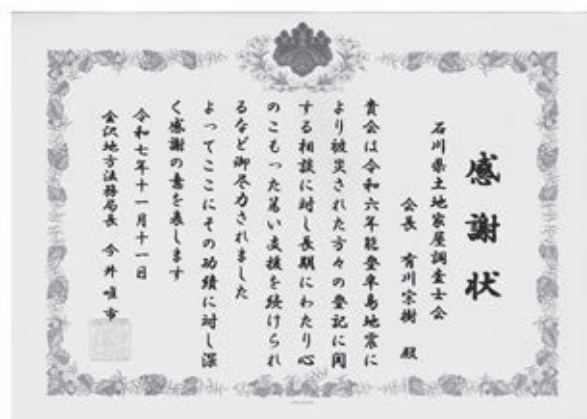 感謝状
石川県土地家屋調査士会
会長 有川宗樹 殿
貴会は令和六年能登半島地震に
より被災された方々の登記に関
する相談に対し長期にわたり心
のこもった篤い支援を続けられ
るなど御尽力されました
よってここにその功績に対し深
く感謝の意を表します
令和七年十一月十一日
金沢地方法務局長 今井唯市